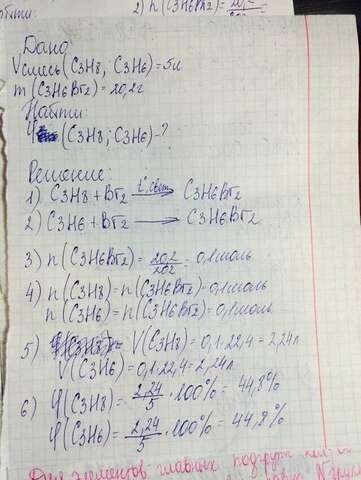 2) n(C3H6Br2)=20,2
202
Дано:
Vсмесь(C3H8; C3H6)=5л
m(C3H6Br2)=20,2г
Найти:
φ(C3H8; C3H6)-?
Решение:
1) C3H8+Br2 t°,свет→ C3H6Br2
2) C3H6+Br2 → C3H6Br2
3) n(C3H6Br2)=20,2/202=0,1моль
4) n(C3H8)=n(C3H6Br2)=0,1моль
n(C3H6)=n(C3H6Br2)=0,1моль
5) V(C3H8)=0,1·22,4=2,24л
V(C3H6)=0,1·22,4=2,24л
6) φ(C3H8)=2,24/5·100%=44,8%
φ(C3H6)=2,24/5·100%=44,8%
Для элементов главных подгрупп